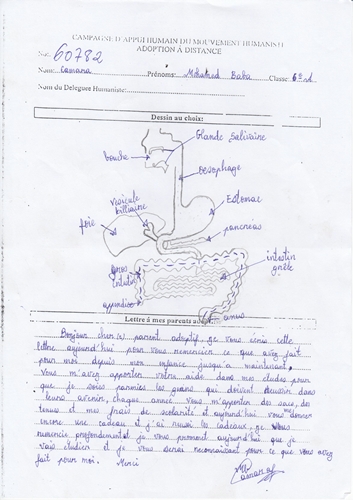 CAMPAGNE D'APPUI HUMAIN DU MOUVEMENT HUMANISTE
ADOPTION A DISTANCE
No: 60782
Nom: Camara Prénoms: Mohamed Baba Classe: 6e A
Nom du Délégué Humaniste:
Dessin au choix:
Glande Salivaire
bouche
Oesophage
vésicule billiaire
Estomac
foie
pancréas
gros intestin
intestin grêle
appendice
anus
Lettre à mes parents adop
Bonjour cher(e) parent adoptif, je vous écris cette
lettre aujourd'hui pour vous remercier ce que avez fait
pour moi depuis mon enfance jusqu'a maintenant,
Vous m'avez apporter votre aide dans mes études pour
que je sois parmies les grans qui doivent réussir dans
leurs avenir, chaque année vous m'apporter des sacs, des
tenues et mes frais de scolarité et aujourd'hui vous me donner
encore une cadeau et j'ai aussi les cadeaux, je vous
remercie profondement et je vous promend aujourd'hui que je
vais étudier et je vous serai reconnaissant pour ce que vous avez
fait pour moi. Merci
Camara